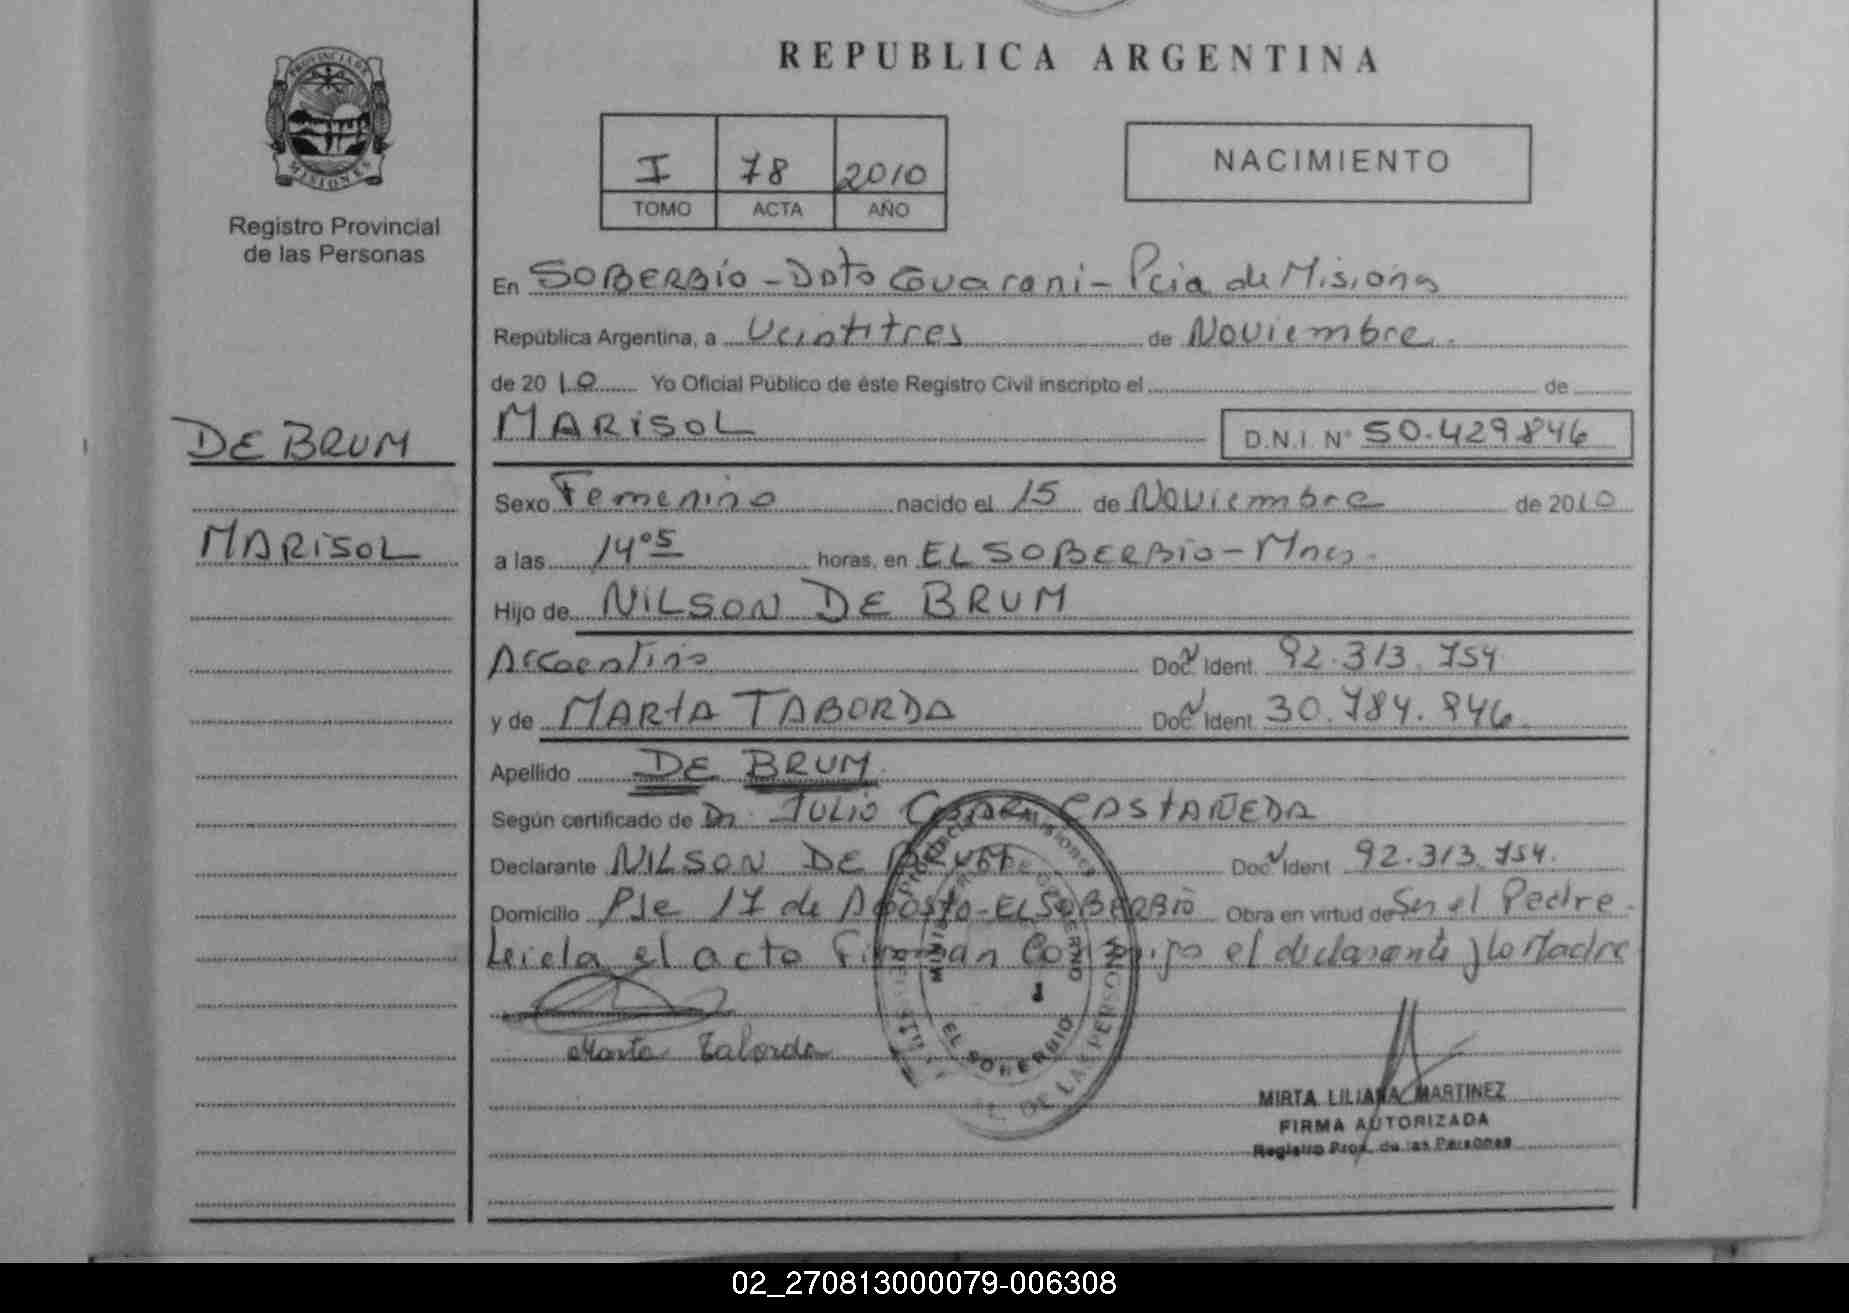 REPUBLICA ARGENTINA
PROVINCIA DE
MISIONES
Registro Provincial
de las Personas
I 78 2010
TOMO ACTA AÑO
NACIMIENTO
En SOBERBIO - Dpto Guarani - Pcia de Misiones
República Argentina, a Veintitres de Noviembre
de 2010 Yo Oficial Público de éste Registro Civil inscripto el de
DE BRUM
MARISOL
MARISOL D.N.I. Nº 50.429.846
Sexo Femenino nacido el 15 de Noviembre de 2010
a las 14º5 horas, en EL SOBERBIO - Mnes.
Hijo de NILSON DE BRUM
Argentino Doc. Ident. 92.313.754
y de MARTA TABORDA Doc. Ident. 30.784.846
Apellido DE BRUM
Según certificado de Dr. JULIO CESAR CASTAÑEDA
Declarante NILSON DE BRUM Doc. Ident 92.313.754.
Domicilio Pje 17 de Agosto - EL SOBERBIO Obra en virtud de Ser el Padre.
Leida el acta Firman Conmigo el declarante y la Madre
Marta Taborda
PROVINCIA DE MISIONES
MINISTERIO DE GOBIERNO
1
EL SOBERBIO
DE LAS PERSONAS
MIRTA LILIANA MARTINEZ
FIRMA AUTORIZADA
Registro Prov. de las Personas
02_270813000079-006308